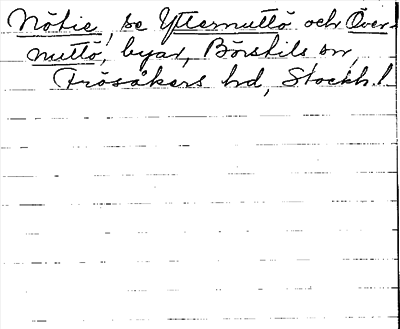 Nötie, se Ytternuttö och Över-
nuttö, byar, Börstils sn,
Frösåkers hd, Stockh. l